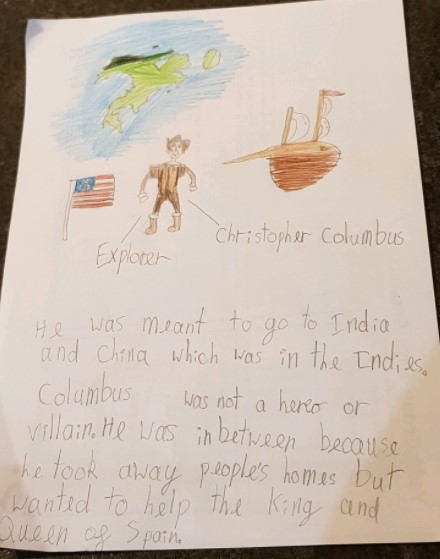 Christopher Columbus
Explorer
He was meant to go to India
and China which was in the Indies.
Columbus was not a hereo or
villain. He was in between because
he took away people's homes but
wanted to help the King and
Queen of Spain.